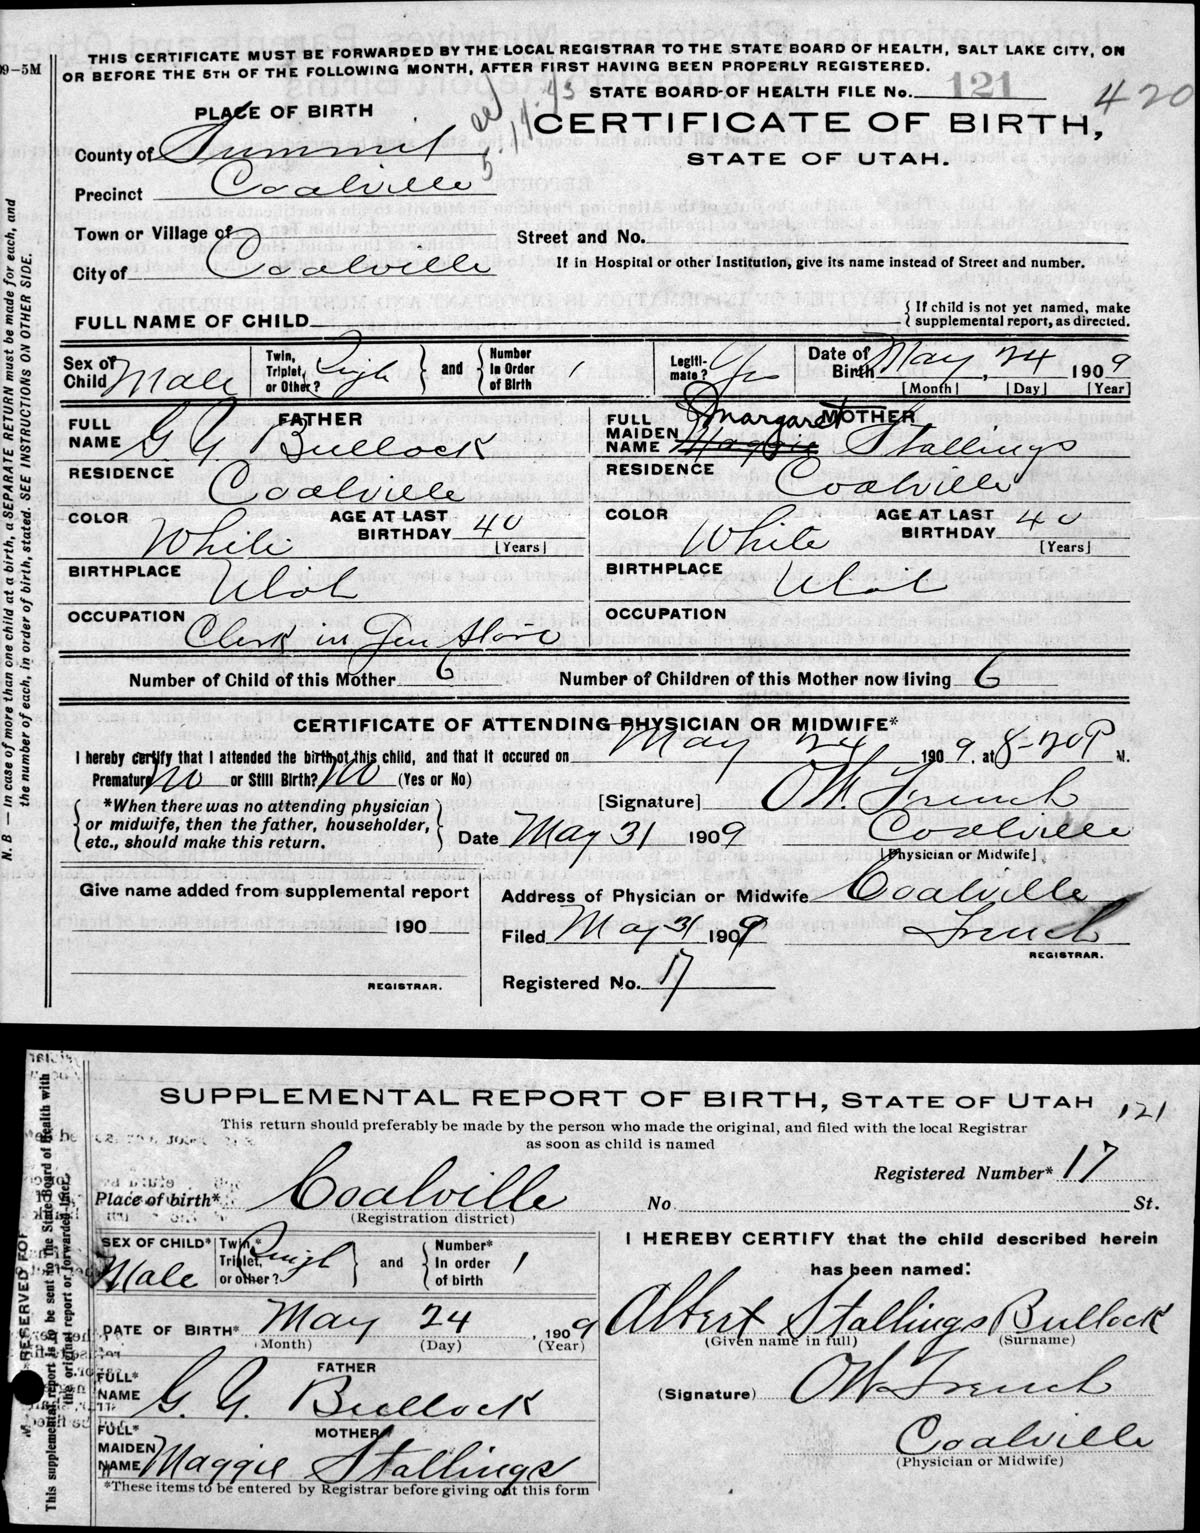 09-5M
THIS CERTIFICATE MUST BE FORWARDED BY THE LOCAL REGISTRAR TO THE STATE BOARD OF HEALTH, SALT LAKE CITY, ON
OR BEFORE THE 5TH OF THE FOLLOWING MONTH, AFTER FIRST HAVING BEEN PROPERLY REGISTERED.
STATE BOARD OF HEALTH FILE No. 121 420
PLACE OF BIRTH
CERTIFICATE OF BIRTH,
STATE OF UTAH.
County of Summit
Precinct Coalville
Town or Village of
Street and No.
City of Coalville
If in Hospital or other Institution, give its name instead of Street and number.
FULL NAME OF CHILD
{ If child is not yet named, make
supplemental report, as directed.
Sex of Child Male
Twin, Triplet, or Other?
and
Number In Order of Birth 1
Legitimate? Yes
Date of Birth May, 24 1909
[Month] [Day] [Year]
FATHER
FULL NAME G. G. Bullock
RESIDENCE Coalville
COLOR White
AGE AT LAST BIRTHDAY 40
[Years]
BIRTHPLACE Utah
OCCUPATION Clerk in Gen Store
MOTHER
FULL MAIDEN NAME Maggie Margaret Stallings
RESIDENCE Coalville
COLOR White
AGE AT LAST BIRTHDAY 40
[Years]
BIRTHPLACE Utah
OCCUPATION
Number of Child of this Mother 6
Number of Children of this Mother now living 6
CERTIFICATE OF ATTENDING PHYSICIAN OR MIDWIFE*
I hereby certify that I attended the birth of this child, and that it occured on May 24 1909, at 8-20 P M.
Premature No or Still Birth? No (Yes or No)
*When there was no attending physician
or midwife, then the father, householder,
etc., should make this return.
[Signature] O.W. French
Date May 31 1909
Coalville
[Physician or Midwife]
Give name added from supplemental report
190
REGISTRAR.
Address of Physician or Midwife Coalville
Filed May 31 1909
French
REGISTRAR.
Registered No. 17
N. B — In case of more than one child at a birth, a SEPARATE RETURN must be made for each, and
the number of each, in order of birth, stated. SEE INSTRUCTIONS ON OTHER SIDE.
SUPPLEMENTAL REPORT OF BIRTH, STATE OF UTAH
121
This return should preferably be made by the person who made the original, and filed with the local Registrar
as soon as child is named
Registered Number* 17
Place of birth* Coalville
(Registration district)
No St.
SEX OF CHILD* Male
Twin,* Triplet, or other?
and
Number* In order of birth 1
DATE OF BIRTH* May 24, 1909
(Month) (Day) (Year)
FATHER
FULL* NAME G. G. Bullock
MOTHER
FULL* MAIDEN NAME Maggie Stallings
*These items to be entered by Registrar before giving out this form
I HEREBY CERTIFY that the child described herein
has been named:
Albert Stallings Bullock
(Given name in full) (Surname)
(Signature) O W French
Coalville
(Physician or Midwife)
RESERVED FOR
This supplemental report is to be sent to the State Board of Health with
the original report or forwarded later.